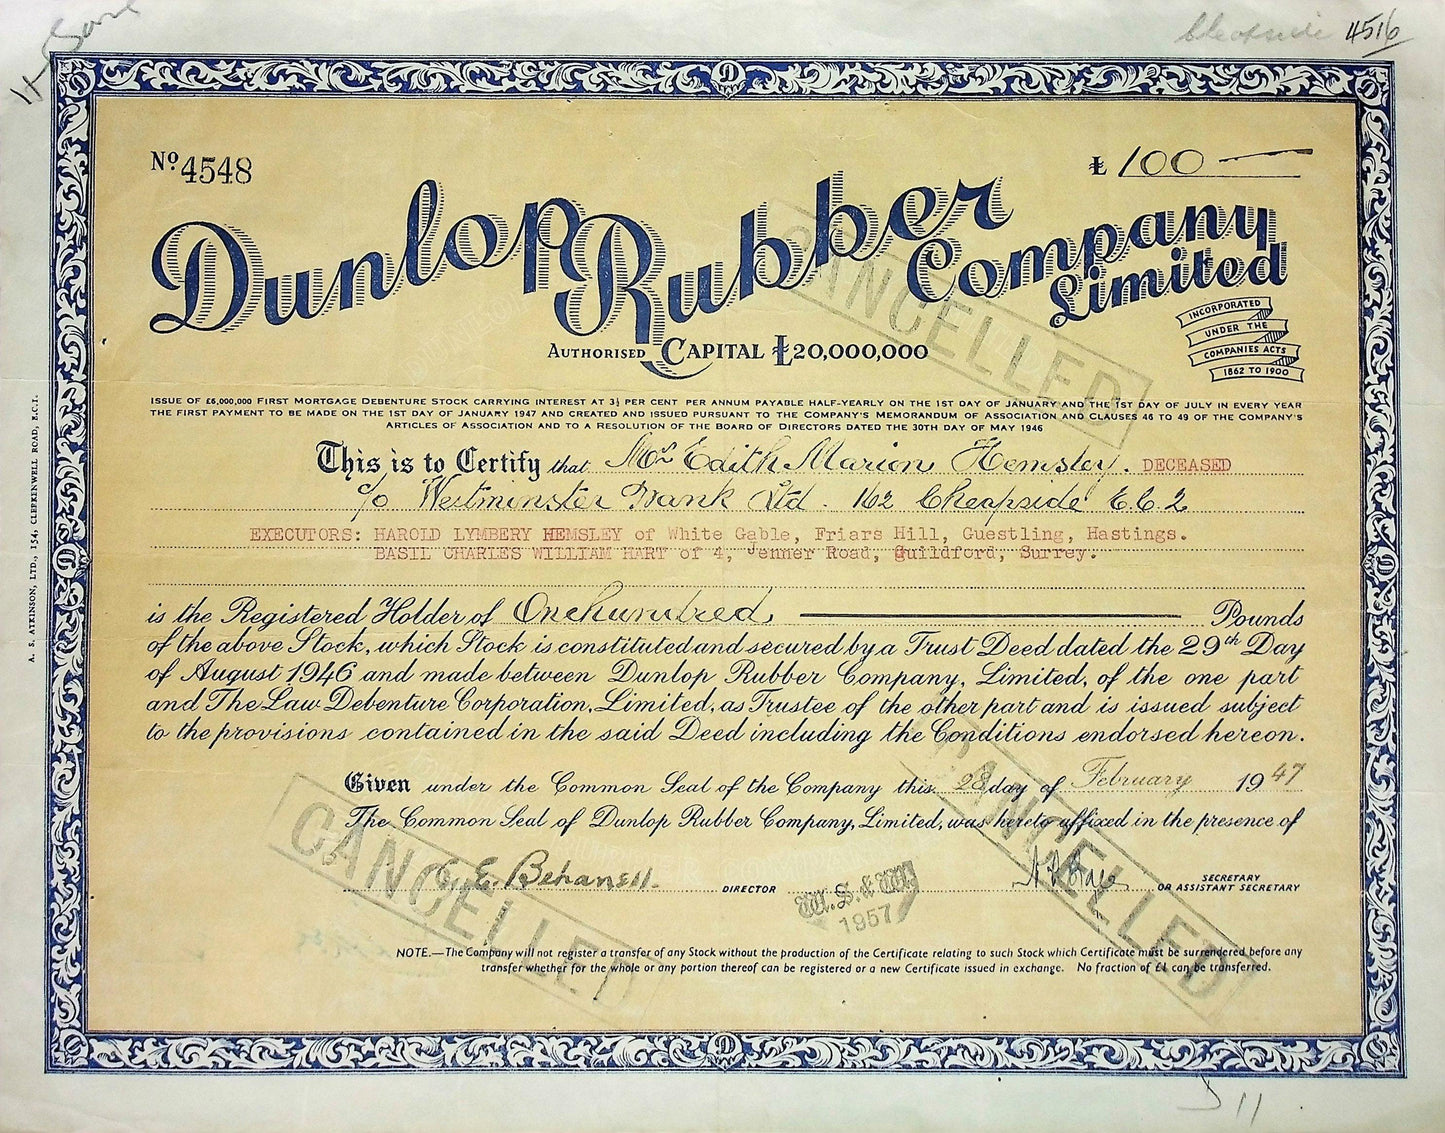 4516
Nº 4548
£ 100
Dunlop Rubber Company Limited
INCORPORATED
UNDER THE
COMPANIES ACTS
1862 TO 1900
AUTHORISED CAPITAL £20,000,000
ISSUE OF £6,000,000 FIRST MORTGAGE DEBENTURE STOCK CARRYING INTEREST AT 3½ PER CENT PER ANNUM PAYABLE HALF-YEARLY ON THE 1ST DAY OF JANUARY AND THE 1ST DAY OF JULY IN EVERY YEAR
THE FIRST PAYMENT TO BE MADE ON THE 1ST DAY OF JANUARY 1947 AND CREATED AND ISSUED PURSUANT TO THE COMPANY'S MEMORANDUM OF ASSOCIATION AND CLAUSES 46 TO 49 OF THE COMPANY'S
ARTICLES OF ASSOCIATION AND TO A RESOLUTION OF THE BOARD OF DIRECTORS DATED THE 30TH DAY OF MAY 1946
This is to Certify that Mrs Edith Marion Hemsley. DECEASED
c/o Westminster Bank Ltd. 162 Cheapside E.C.2
EXECUTORS: HAROLD LYMBERY HEMSLEY of White Gable, Friars Hill, Guestling, Hastings.
BASIL CHARLES WILLIAM HART of 4, Jenner Road, Guildford, Surrey.
is the Registered Holder of One hundred Pounds
of the above Stock, which Stock is constituted and secured by a Trust Deed dated the 29th Day
of August 1946 and made between Dunlop Rubber Company, Limited, of the one part
and The Law Debenture Corporation, Limited, as Trustee of the other part and is issued subject
to the provisions contained in the said Deed including the Conditions endorsed hereon.
Given under the Common Seal of the Company this 28 day of February 1947
The Common Seal of Dunlop Rubber Company, Limited, was hereto affixed in the presence of
DIRECTOR
SECRETARY
OR ASSISTANT SECRETARY
W.S.& W.
1957
NOTE.—The Company will not register a transfer of any Stock without the production of the Certificate relating to such Stock which Certificate must be surrendered before any
transfer whether for the whole or any portion thereof can be registered or a new Certificate issued in exchange. No fraction of £1 can be transferred.
CANCELLED
CANCELLED
CANCELLED
A. S. ATKINSON, LTD., 154, CLERKENWELL ROAD, E.C.1.
11